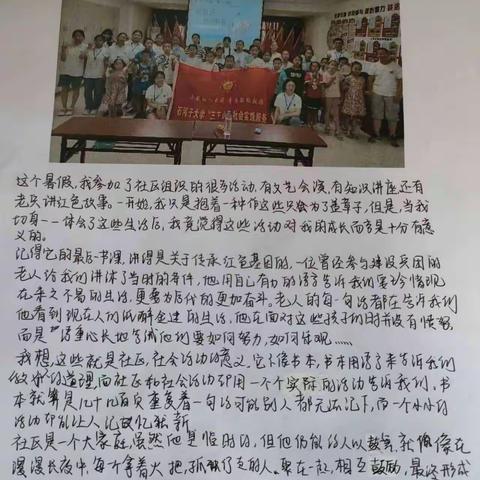 石河子大学"三下乡"社会实践服务
这个暑假,我参加了社区组织的很多活动,有文艺会演,有知识讲座还有
老兵讲红色故事。一开始,我只是抱着一种作这些只会为了盖章子,但是,当我
切身一一体会了这些生活后,我竟觉得这些活动对我的成长而言是十分有意
义的。
记得它的最后一节课,讲得是关于传承红色基因的,一位曾经参与建设兵团的
老人给我们讲体了当时的条件,他用自己有力的语言告诉我们要珍惜现
在来之不易的生活,更要为后代的更加奋斗。老人的每一句话都在告诉我们
他看到现在人们纸醉金迷的生活,他在面对这些孩子们时并没有愤怒,
而是"语重心长地告诫他们要如何努力,如何体现……
我想,这些就是社区,社会活动的意义。它不像书本,书本用语言来告诉我们
做的道理,而社区和社会活动却用一个个实际的活动告诉我们,书
本就算是几十几百页重复着一句话可能别人都无法记下,而一个小小的
活动却能让人记忆犹新
社区是一个大家庭,虽然他是慢的的,但他仍能的人以鼓舞,就像像在
漫漫长夜中,每个拿着火把,孤的人。聚在一起,相互鼓励,最终形成